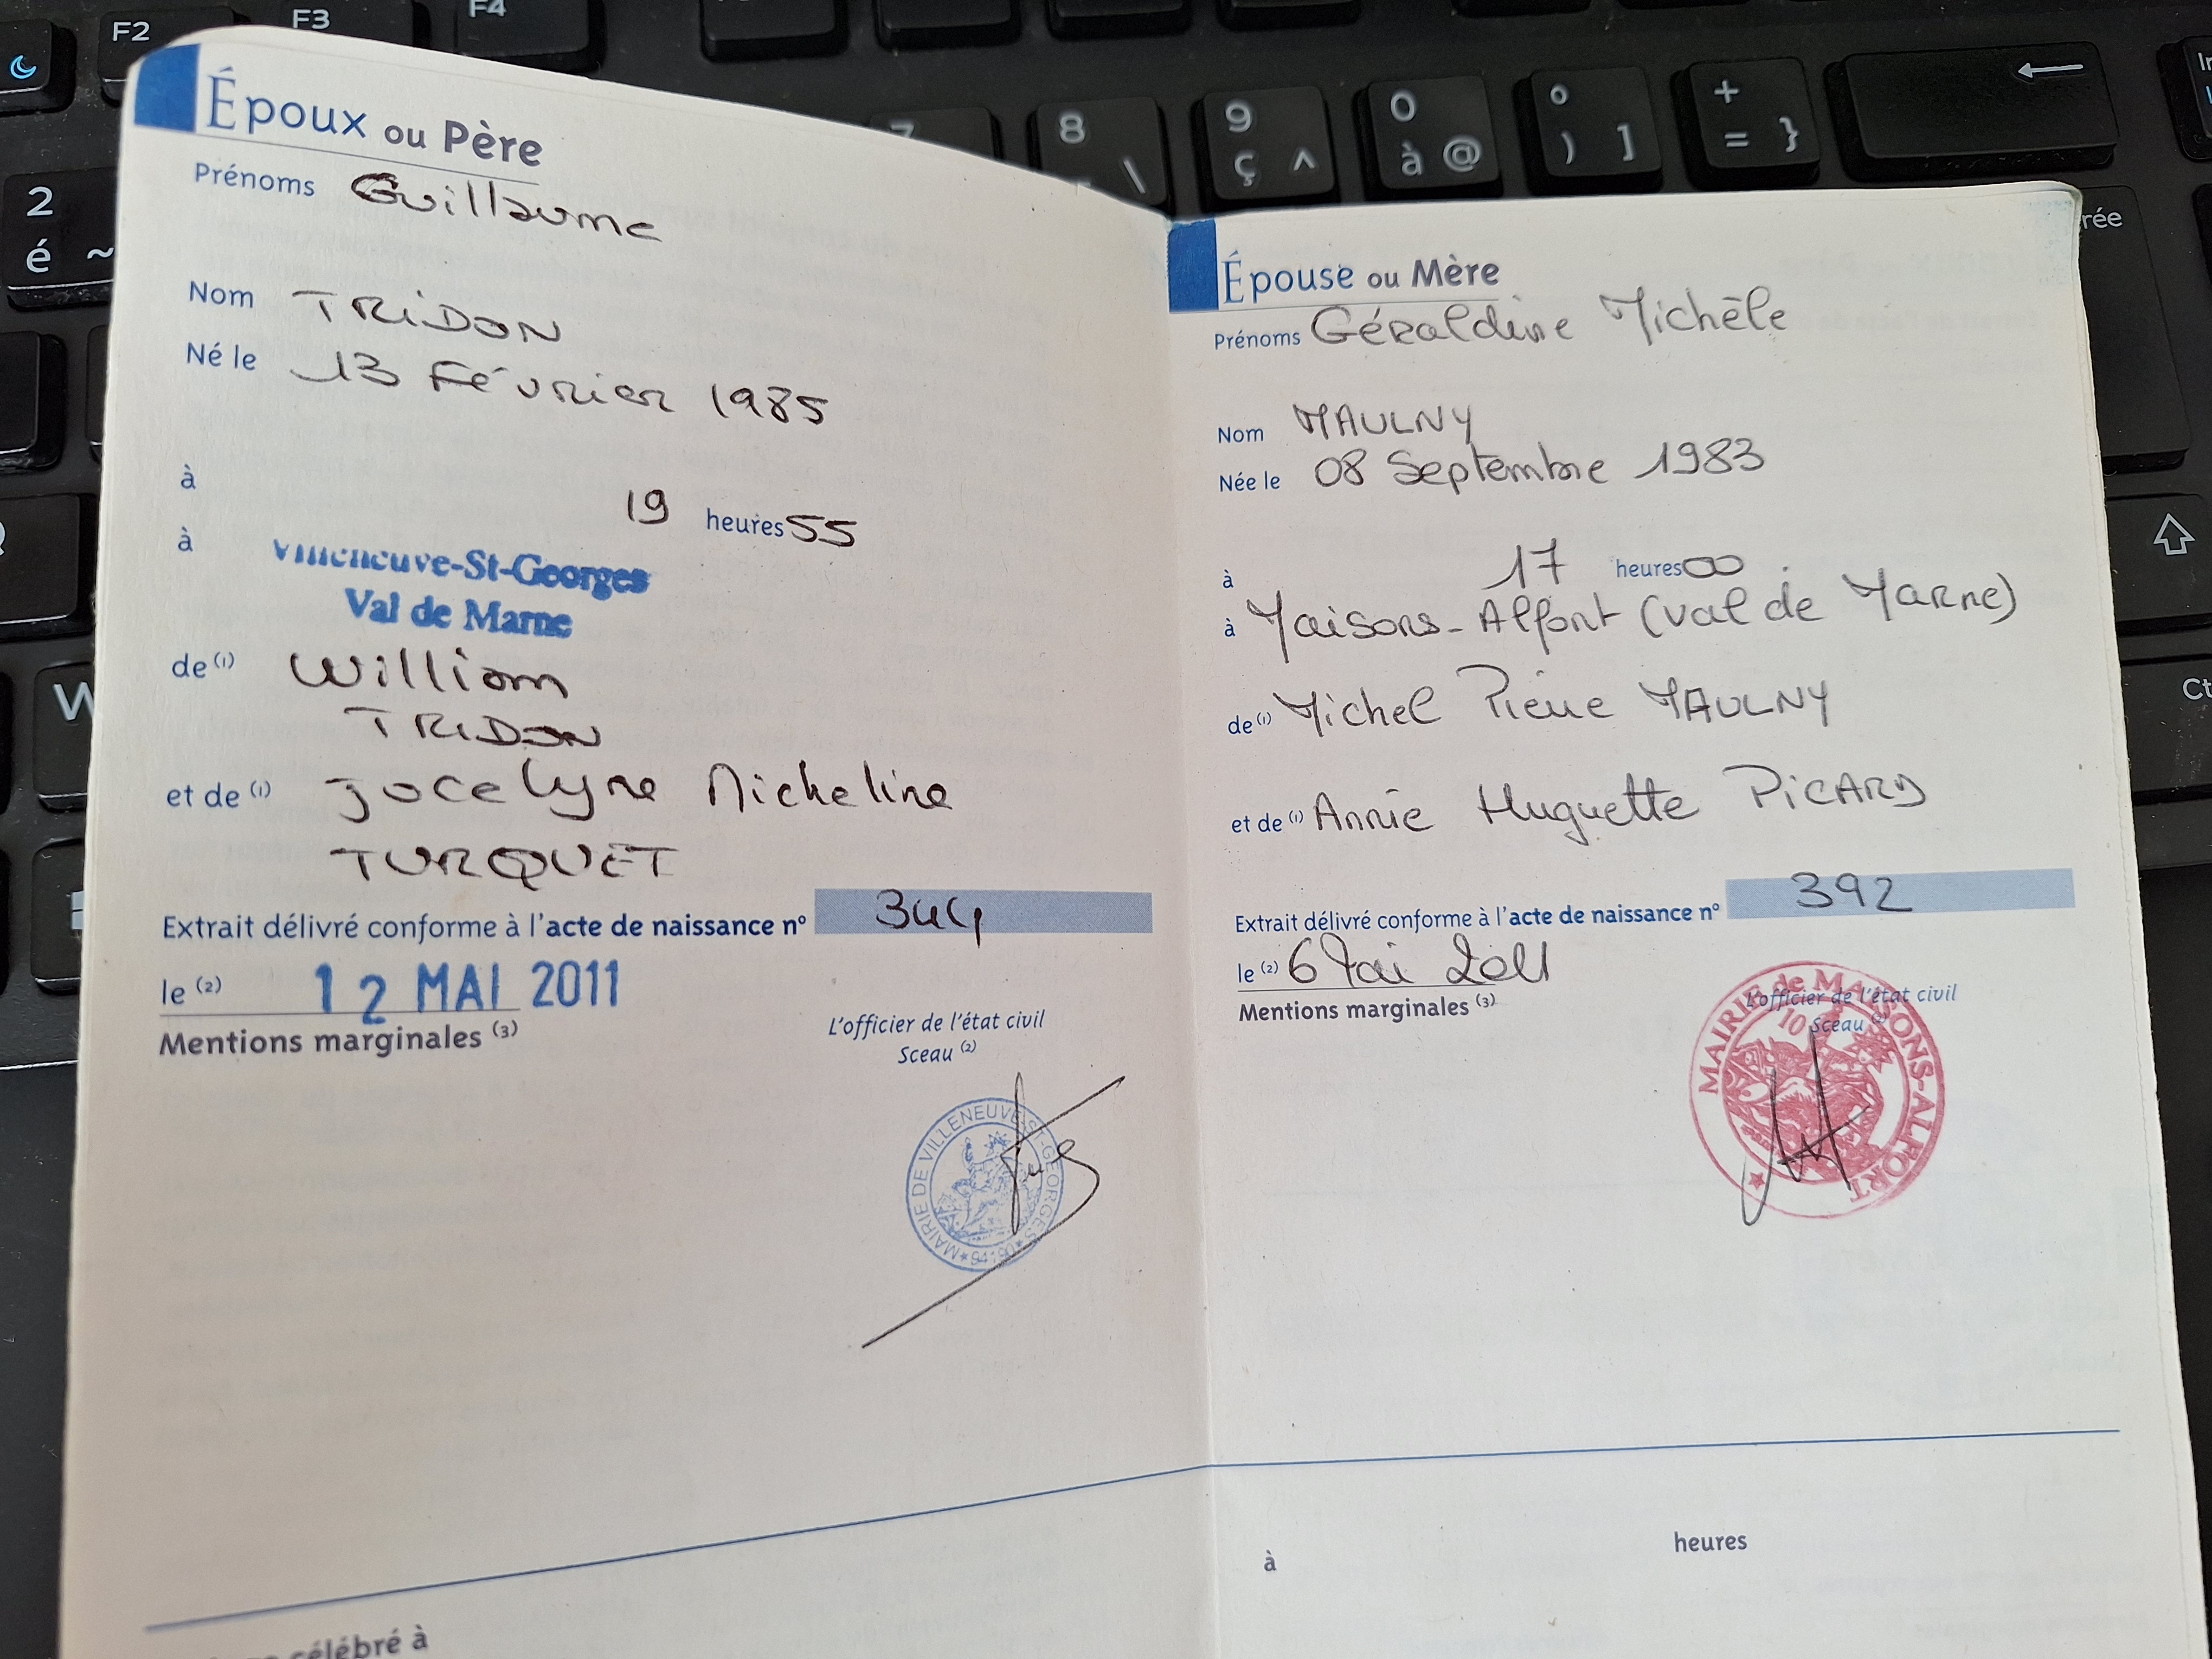 F2
F3
F4
2
é ~
8
\
9
ç ^
0
à @
°
) ]
+
= }
rée
W
Ct
Époux ou Père
Prénoms Guillaume
Nom TRIDON
Né le 13 Février 1985
à 19 heures 55
à Villeneuve-St-Georges
Val de Marne
de (1) William
TRIDON
et de (1) Jocelyne Micheline
TURQUET
Extrait délivré conforme à l'acte de naissance n° 344
le (2) 12 MAI 2011
Mentions marginales (3)
L'officier de l'état civil
Sceau (2)
MAIRIE DE VILLENEUVE-ST-GEORGES
célébré à
Épouse ou Mère
Prénoms Géraldine Michèle
Nom MAULNY
Née le 08 Septembre 1983
à 17 heures 00
à Maisons-Alfort (Val de Marne)
de (1) Michel Pierre MAULNY
et de (1) Annie Huguette PICARD
Extrait délivré conforme à l'acte de naissance n° 392
le (2) 6 Mai 2011
Mentions marginales (3)
L'officier de l'état civil
Sceau (2)
MAIRIE de MAISONS-ALFORT
10
à heures